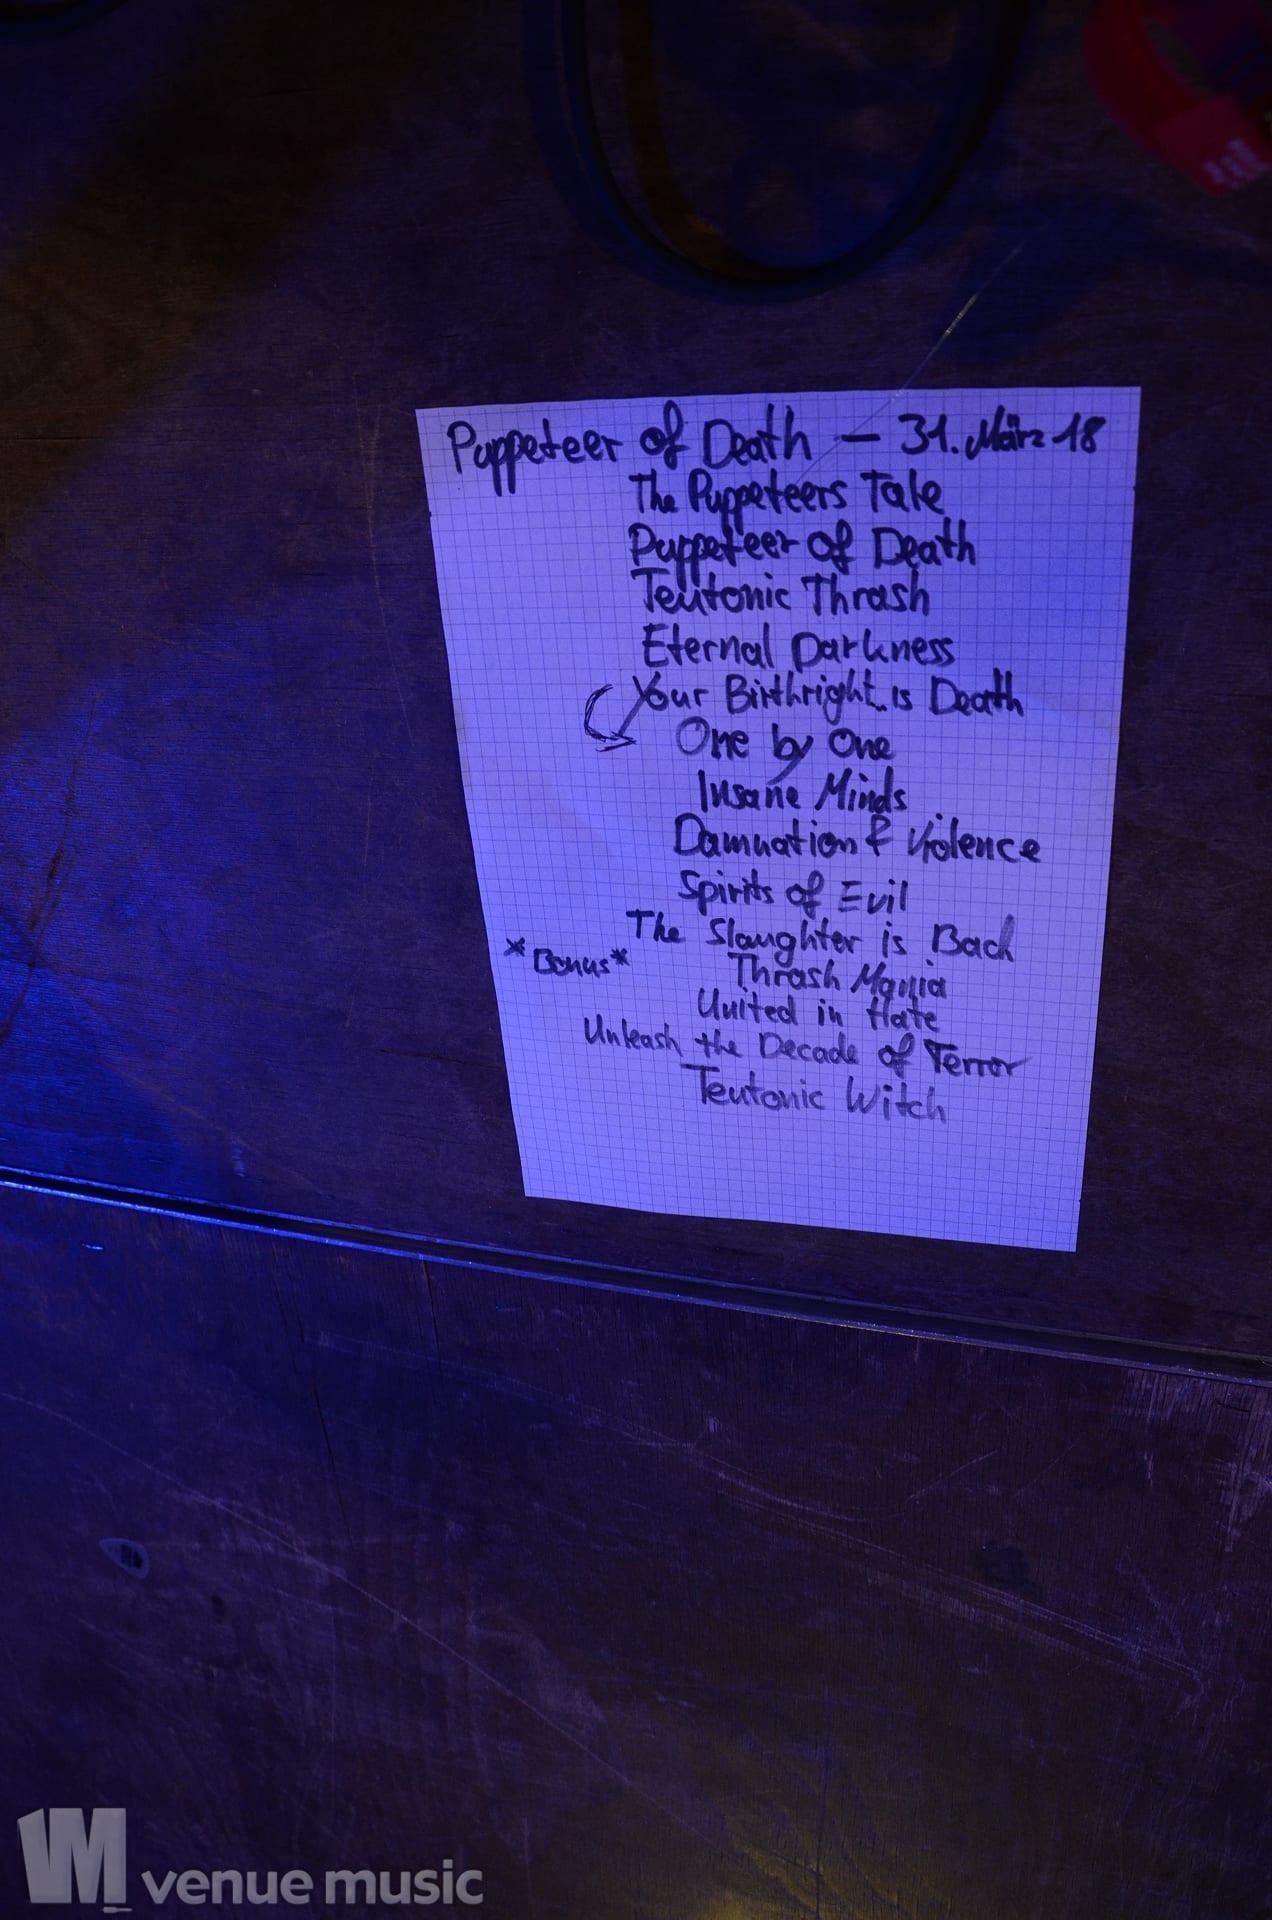 Puppeteer of Death — 31. März 18
The Puppeteers Tale
Puppeteer of Death
Teutonic Thrash
Eternal Darkness
Your Birthright is Death
One by One
Insane Minds
Damnation & Violence
Spirits of Evil
The Slaughter is Back
*Bonus* Thrash Mania
United in Hate
Unleash the Decade of Terror
Teutonic Witch
venue music